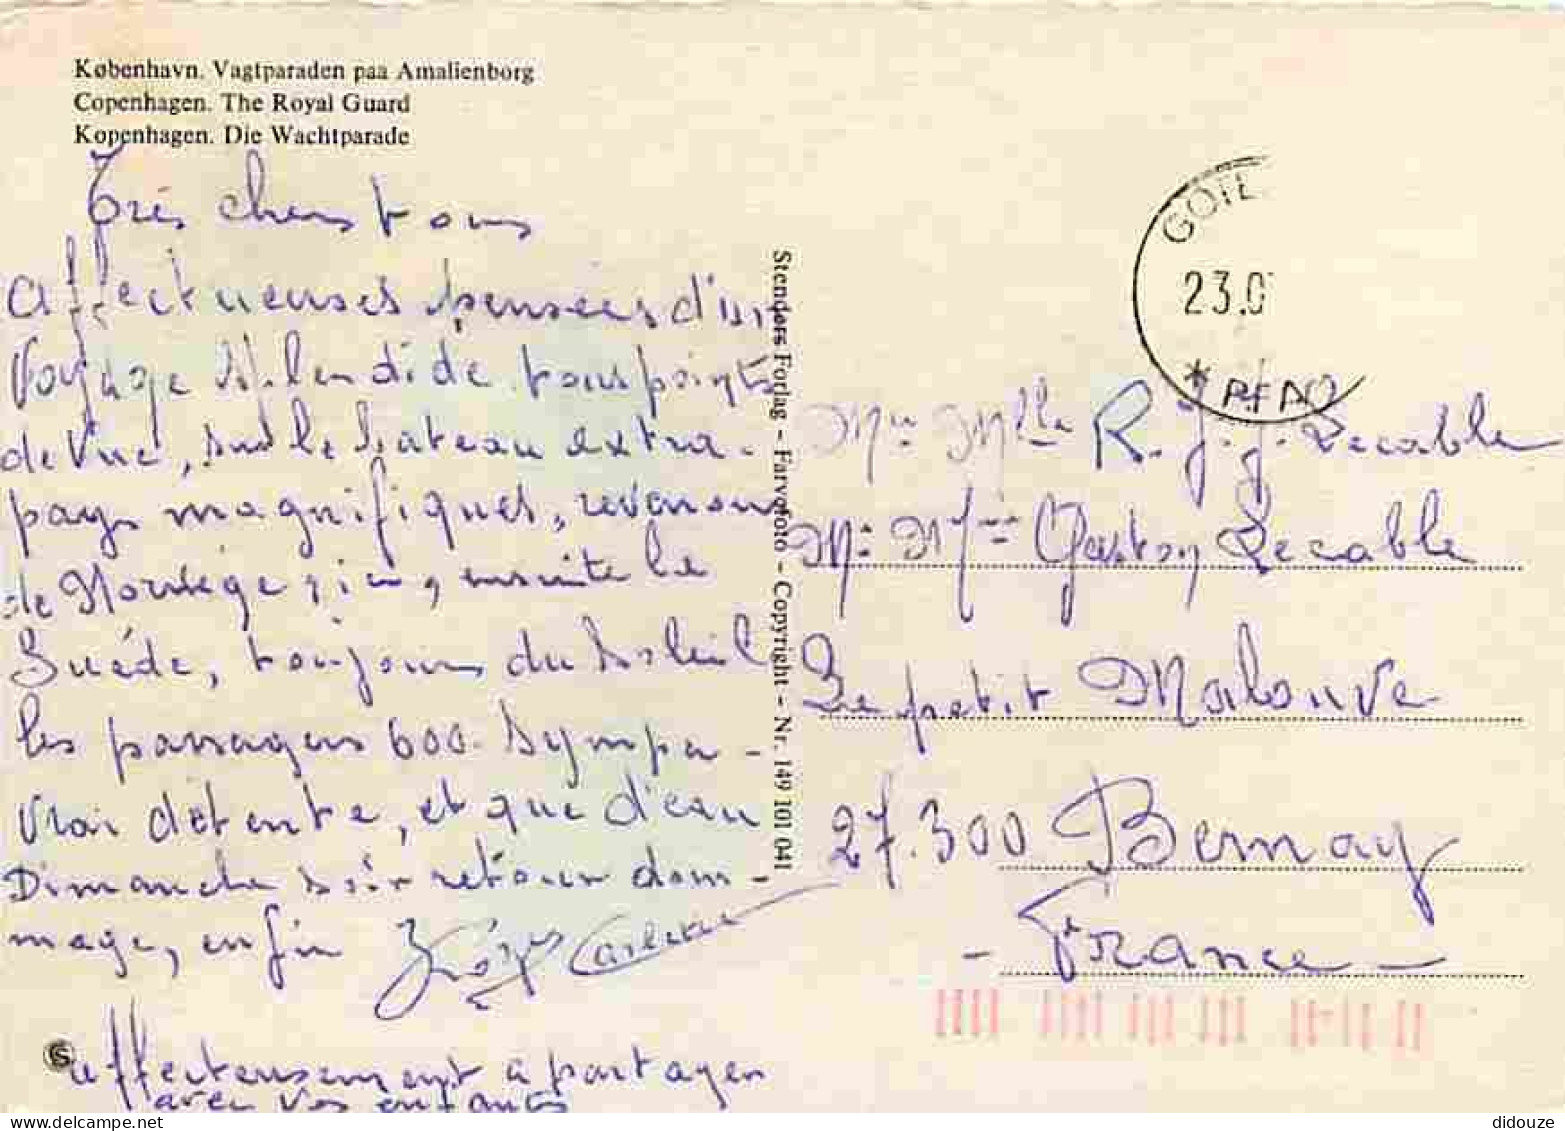 København. Vagtparaden paa Amalienborg
Copenhagen. The Royal Guard
Kopenhagen. Die Wachtparade
Très chers tous
Affectueuses pensées d'un
Voyage splendide tous points
de Vue, sur le bateau extra.
pays magnifiques, revenons
de Norvège, ensuite la
Suéde, toujours du soleil
les passagers 600. Sympa -
Vrai détente, et que d'eau
Dimanche soir retour dom-
mage, enfin
affectueusement a partager
avec vos enfants
Stenders Forlag - Farvefoto - Copyright - Nr. 149 101 041
GOTE
23.0
* P.FAQ
Mr Mlle R. J. J. Lecable
Mr Mme Gaston Lecable
Le petit Malouve
27.300 Bernay
- France -
didouze